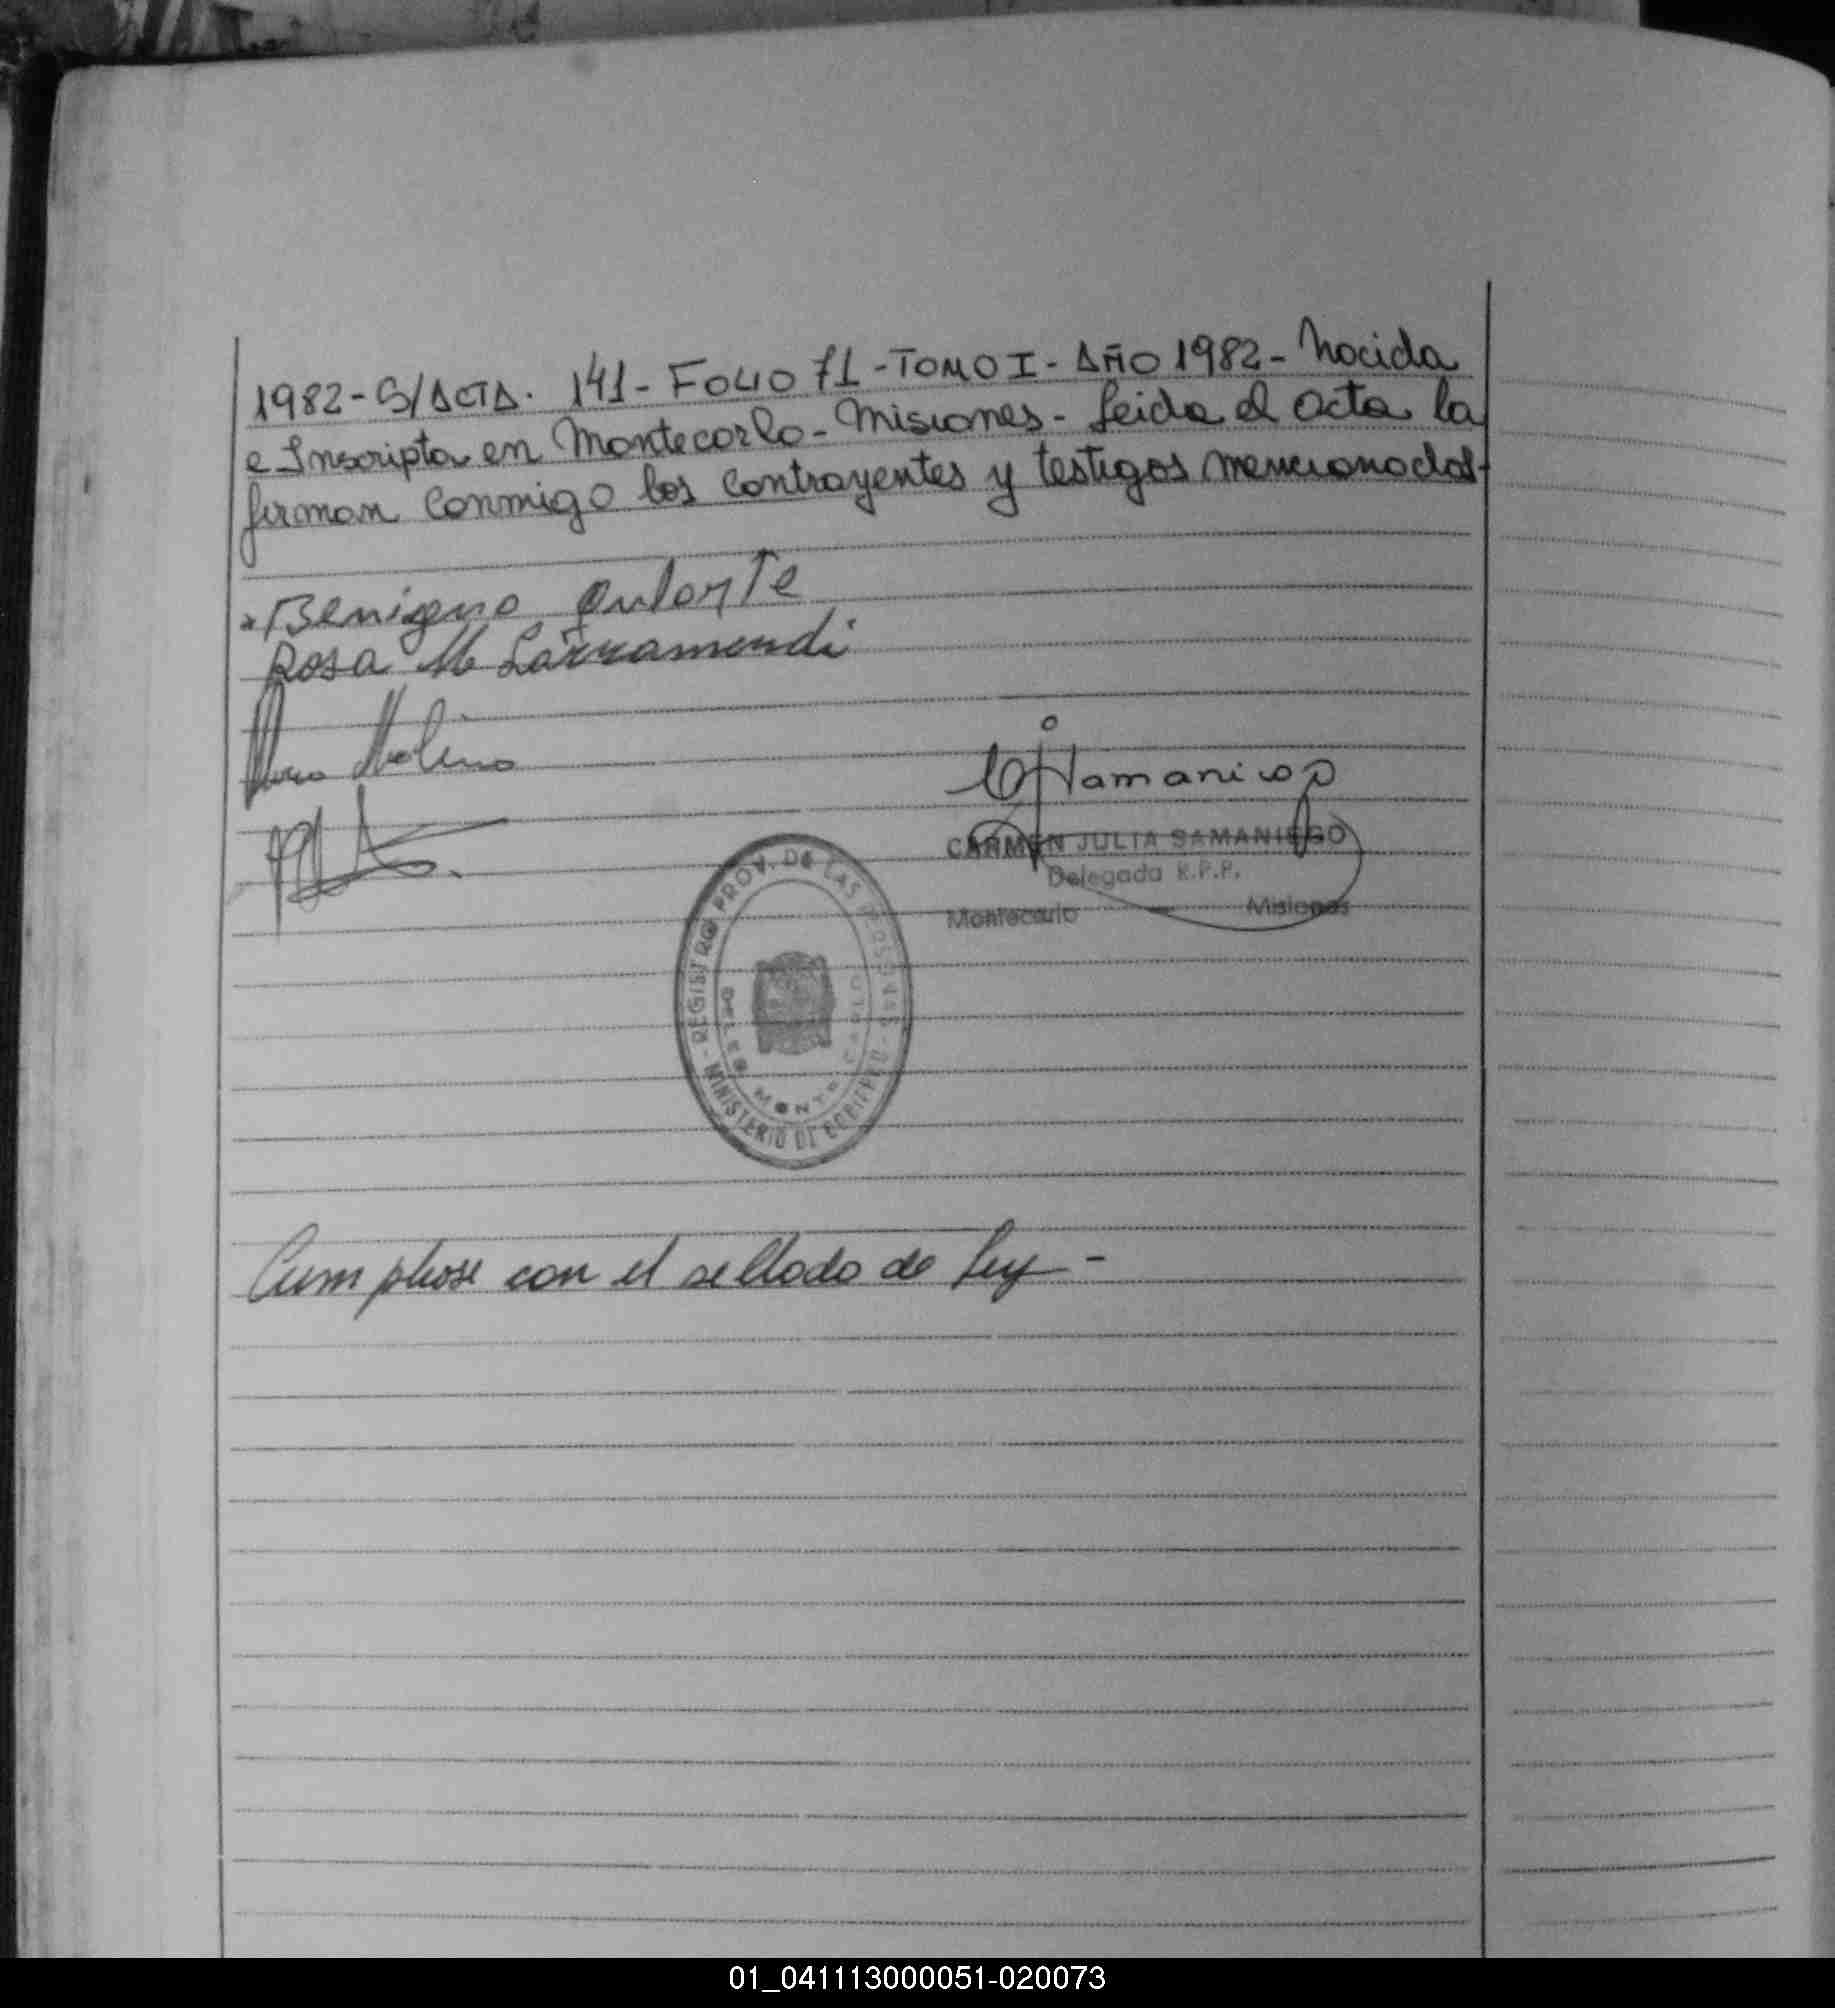 1982-S/ACTA. 141-FOLIO 71-TOMO I-AÑO 1982-Nacida
e Inscripta en Montecarlo-Misiones-Leida el Acta la
firman Conmigo los Contrayentes y testigos mencionados-
Benigno
Rosa M Larramendi
Molina
CARMEN JULIA SAMANIEGO
Delegada R.P.P.
Montecarlo Misiones
REGISTRO PROV. DE LAS PERSONAS
MINISTERIO DE GOBIERNO
MONTE CARLO
Cumplase con el sellado de Ley-
01_041113000051-020073